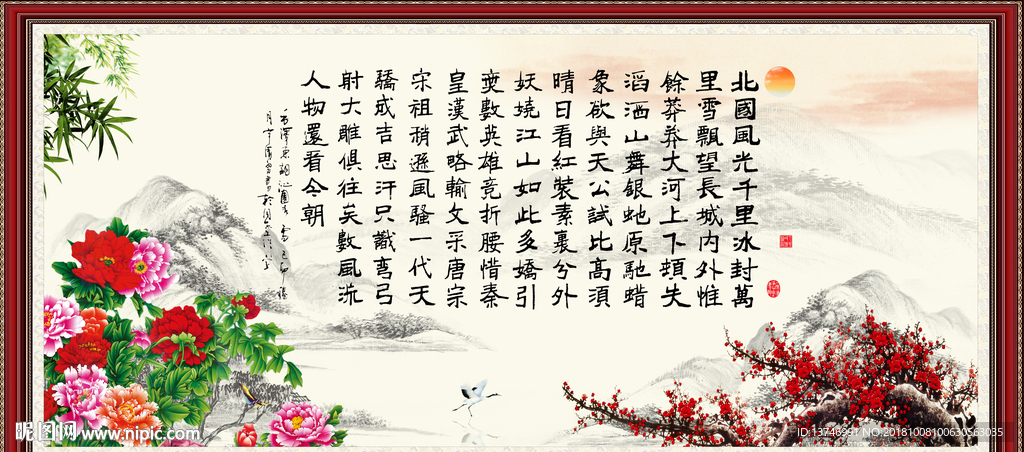 北國風光千里冰封萬
里雪飄望長城内外惟
餘莽莽大河上下頓失
滔滔山舞銀蛇原馳蜡
象欲與天公試比高須
晴日看紅裝素裹兮外
妖嬈江山如此多嬌引
無數英雄竞折腰惜秦
皇漢武略輸文采唐宗
宋祖稍遜風騷一代天
驕成吉思汗只識彎弓
射大雕俱往矣數風流
人物還看今朝
毛澤東詞沁園春雪
昵图网 www.nipic.com
ID:13746991 NO:20181008100630563035